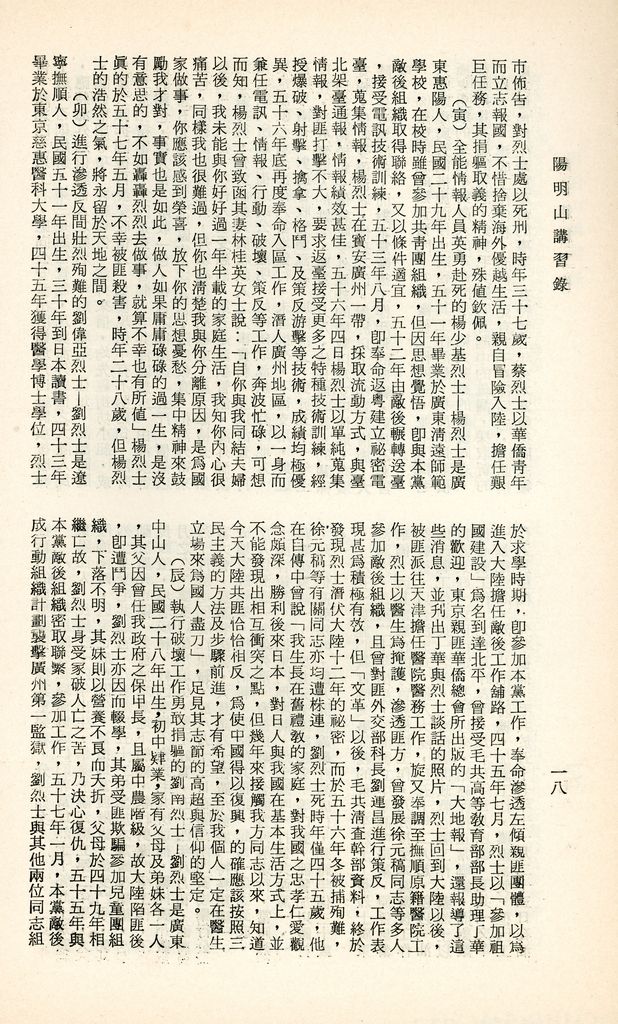 陽明山講習錄
一八
市佈告，對烈士處以死刑，時年三十七歲，蔡烈士以華僑青年
而立志報國，不惜捨棄海外優越生活，親自冒險入陸，擔任艱
巨任務，其捐軀取義的精神，殊値欽佩。
（寅）全能情報人員英勇赴死的楊少基烈士—楊烈士是廣
東惠陽人，民國二十九年出生，五十一年畢業於廣東淸遠師範
學校，在校時雖曾參加共靑團組織，但因思想覺悟，卽與本黨
敵後組織取得聯絡，又以條件適宜，五十二年由敵後輾轉送臺
，接受電訊技術訓練，五十三年八月，卽奉命返粤建立祕密電
臺，蒐集情報，楊烈士在寳安廣州一帶，採取流動方式，與臺
北架臺通報，情報績效甚佳，五十六年四日楊烈士以單純蒐集
情報，對匪打擊不大，要求返臺接受更多之特種技術訓練，經
授爆破、射擊、擒拿、格鬥、及策反游擊等技術，成績均極優
異，五十六年底再度奉命入區工作，潛人廣州地區，以一身而
兼任電訊、情報、行動、破壞、策反等工作，奔波忙碌，可想
而知，楊烈士曾致函其妻林桂英女士說：「自你與我同結夫婦
以後，我未能與你好好過一年半載的家庭生活，我知你內心很
痛苦，同樣我也很難過，但你也淸楚我與你分離原因，是爲國
家做事，你應該感到榮喜，放下你的思想憂愁，集中精神來鼓
勵我才對，事實也是如此，做人如果庸庸碌碌的過一生，是沒
有意思的，不如轟轟烈烈去做事，就算不幸也有所値」楊烈士
眞的於五十七年五月，不幸被匪殺害，時年二十八歲，但楊烈
士的浩然之氣，將永留於天地之間。
（卯）進行滲透反間壯烈殉難的劉偉亞烈士—劉烈士是遼
寧撫順人，民國五十一年出生，三十年到日本讀書，四十三年
畢業於東京慈惠醫科大學，四十五年獲得醫學博士學位，烈士
於求學時期，卽參加本黨工作，奉命滲透左傾親匪團體，以爲
進入大陸擔任敵後工作舖路，四十五年七月，烈士以「參加祖
國建設」爲名到達北平，曾接受毛共高等敎育部部長助理丁華
的歡迎，東京親匪華僑總會所出版的「大地報」，還報導了這
些消息，並刊出丁華與烈士談話的照片，烈士回到大陸以後，
被匪派往天津擔任醫院醫務工作，旋又奉調至撫順原籍醫院工
作，烈士以醫生爲掩護，滲透匪方，曾發展徐元稿同志等多人
參加敵後組織，且曾對匪外交部科長劉連昌進行策反，工作表
現甚爲積極有效，但「文革」以後，毛共淸查幹部資料，終於
發現烈士潛伏大陸十二年的祕密，而於五十六年冬被捕殉難，
徐元稿等有關同志亦均遭株連，劉烈士死時年僅四十五歲，他
在自傳中曾說「我生長在舊禮敎的家庭，對我國之忠孝仁愛觀
念頗深，勝利後來日本，對日人與我國在基本生活方式上，並
不能發現出相互衝突之點，但幾年來接觸我方同志以來，知道
今天大陸共匪恰恰相反，爲使中國得以復興，的確應該按照三
民主義的方法及步驟前進，才有希望，至於我個人一定在醫生
立場來爲國人盡力」，足見其志節的高超與信仰的堅定。
（辰）執行破壞工作勇敢捐軀的劉南烈士—劉烈士是廣東
中山人，民國二十八年出生，初中肄業，家有父母及弟妹各一人
，其父因曾任我政府之保甲長，且屬中農階級，故大陸陷匪後
，卽遭鬥爭，劉烈士亦因而輟學，其弟受匪欺騙參加兒童團組
織，下落不明，其妹則以營養不良而夭折，父母於四十九年相
繼亡故，劉烈士身受家破人亡之苦，乃決心復仇，五十五年與
本黨敵後組織密取聯繫，參加工作，五十七年一月，本黨敵後
成行動組織計劃襲擊廣州第一監獄，劉烈士與其他兩位同志組